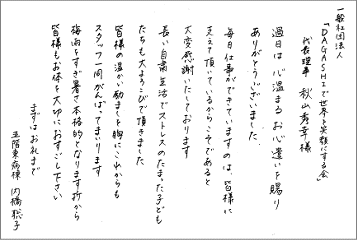 一般社団法人
「DAGASHIで世界を笑顔にする会」
代表理事 秋山秀幸様
過日は心温まるお心遣いを賜り
ありがとうございました
毎日仕事ができていますのは、皆様に
支えて頂いているからこそであると
大変感謝いたしております
長い自粛生活でストレスのたまった子ども
たちも大よろこびで頂きました
皆様の温かい励ましを胸にこれからも
スタッフ一同がんばってまいります
梅雨をすぎ暑さ本格的となります折から
皆様もお体を大切にお過ごし下さい
まずはお礼まで
五階東病棟 内橋聡子